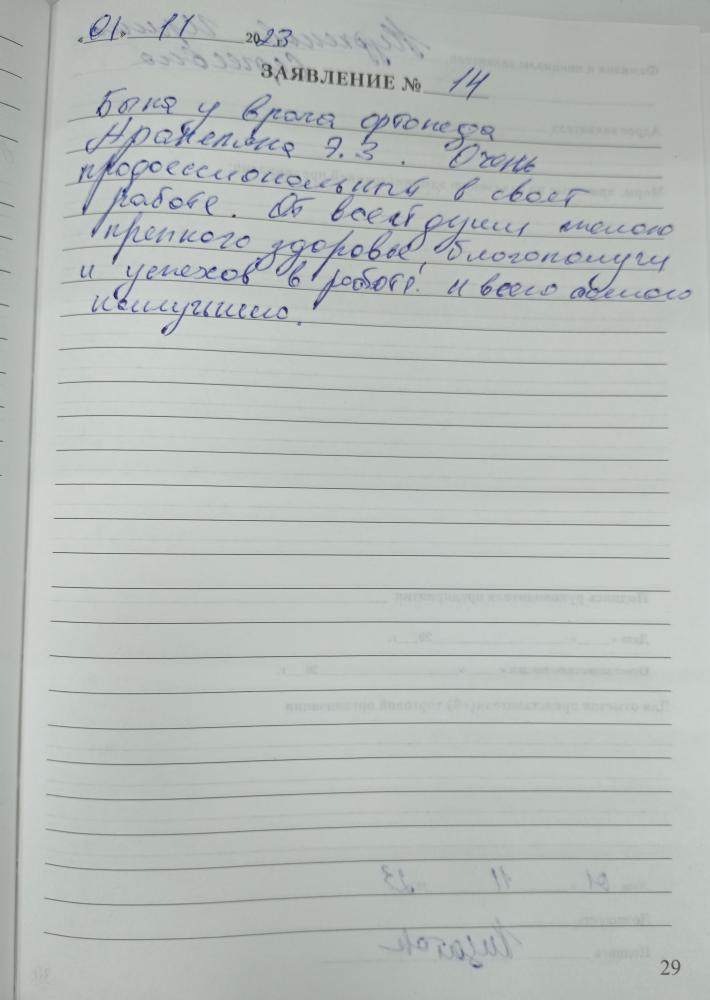 «01» 11 2023 г.
ЗАЯВЛЕНИЕ № 14
Была у врача ортопеда
Аракеляна Э.З. Очень
профессиональный в своей
работе. От всей души желаю
крепкого здоровье, благополучи
и успехов в работе! и всего самого
наилучшего.
29